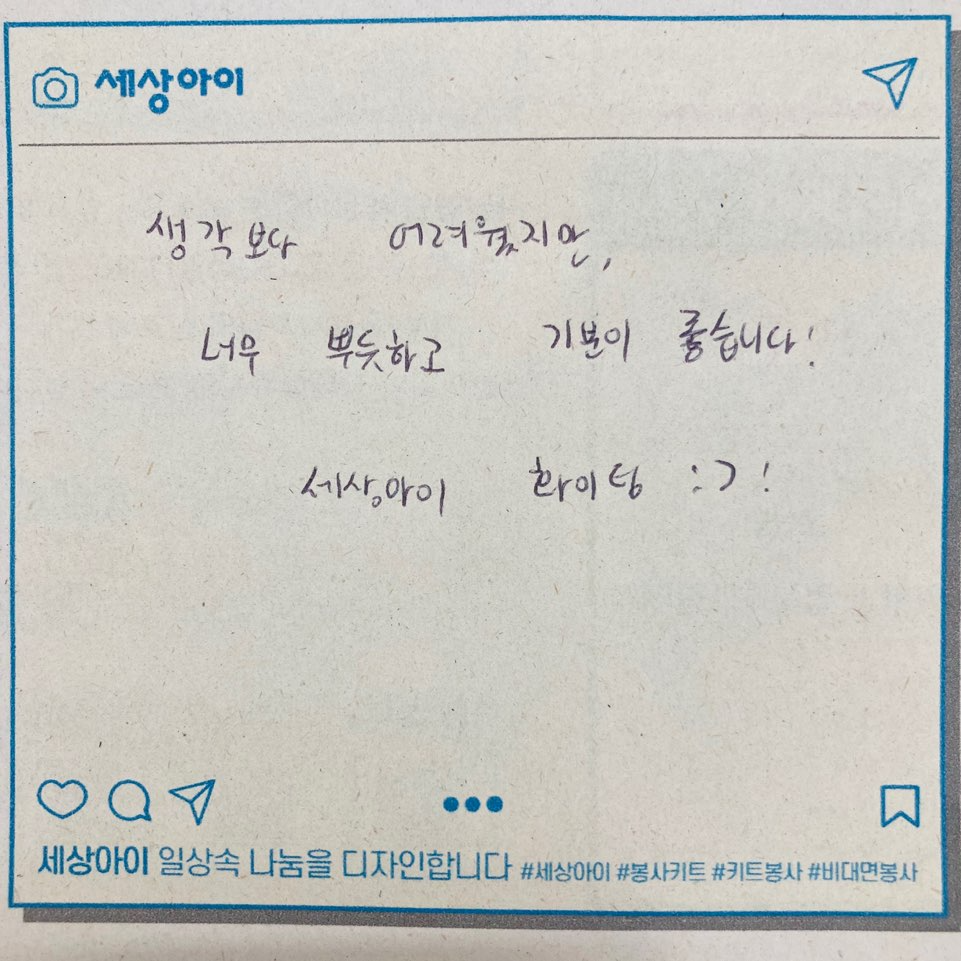 세상아이
생각보다 어려웠지만,
너무 뿌듯하고 기분이 좋습니다!
세상아이 화이팅 :)!
세상아이 일상속 나눔을 디자인합니다 #세상아이 #봉사키트 #키트봉사 #비대면봉사